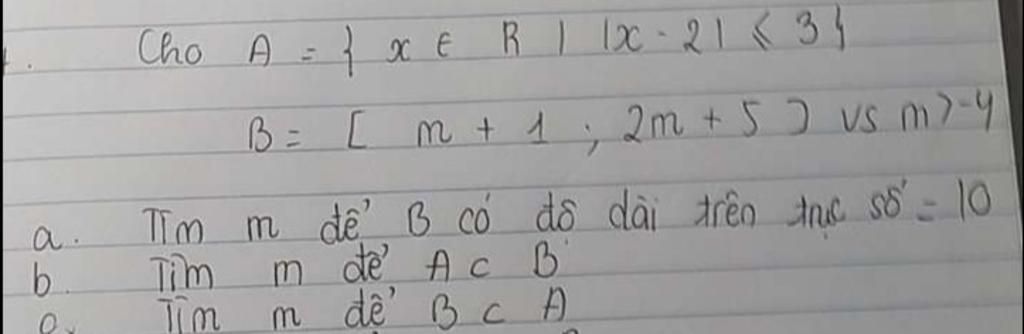 Cho A = { x ∈ R | |x - 2| ≤ 3 }
B = [ m + 1 ; 2m + 5 ) vs m > -4
a. Tìm m để B có độ dài trên trục số = 10
b. Tìm m để A ⊂ B
c. Tìm m để B ⊂ A